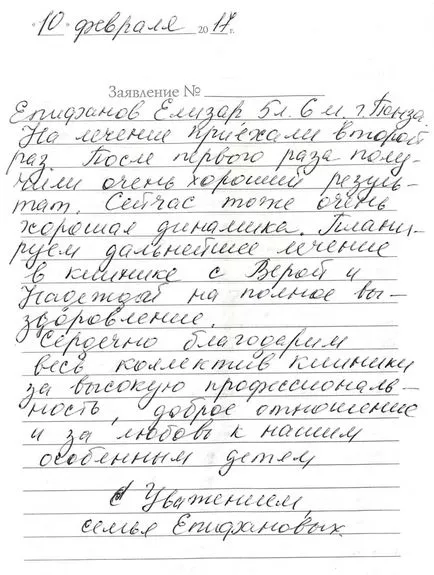 "10" февраля 2017 г.
Заявление №
Епифанов Елизар 5л. 6 м. г. Пенза.
На лечение приехали второй
раз После первого раза полу-
чили очень хороший резуль-
тат. Сейчас тоже очень
хорошая динамика. Плани-
руем дальнейшее лечение
в клинике с Верой и
Надеждой на полное вы-
здоровление.
Сердечно благодарим
весь коллектив клиники
за высокую профессиональ-
ность, доброе отношение
и за любовь к нашим
особенным детям
С Уважением,
семья Епифановых.